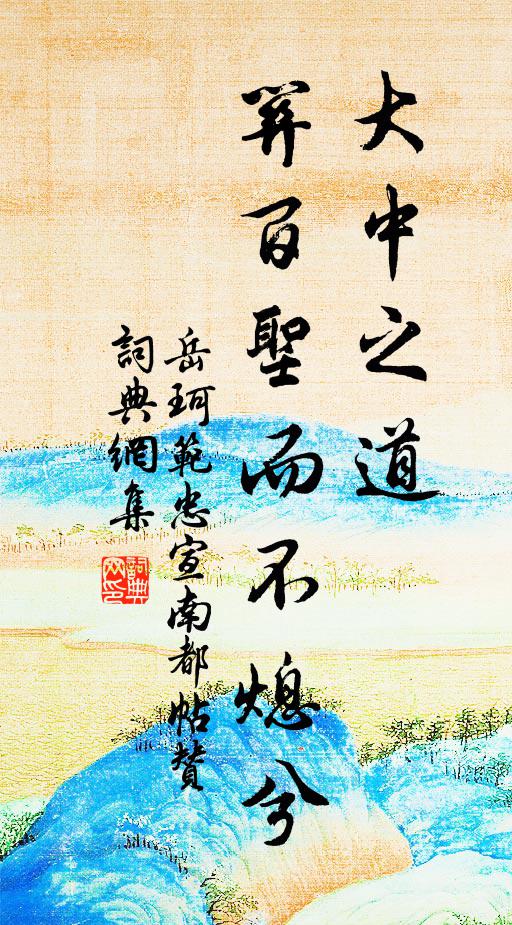 大中之道
羿百聖而不熄兮
岳珂範忠宣南都帖贊
詞典網集
詞典網印